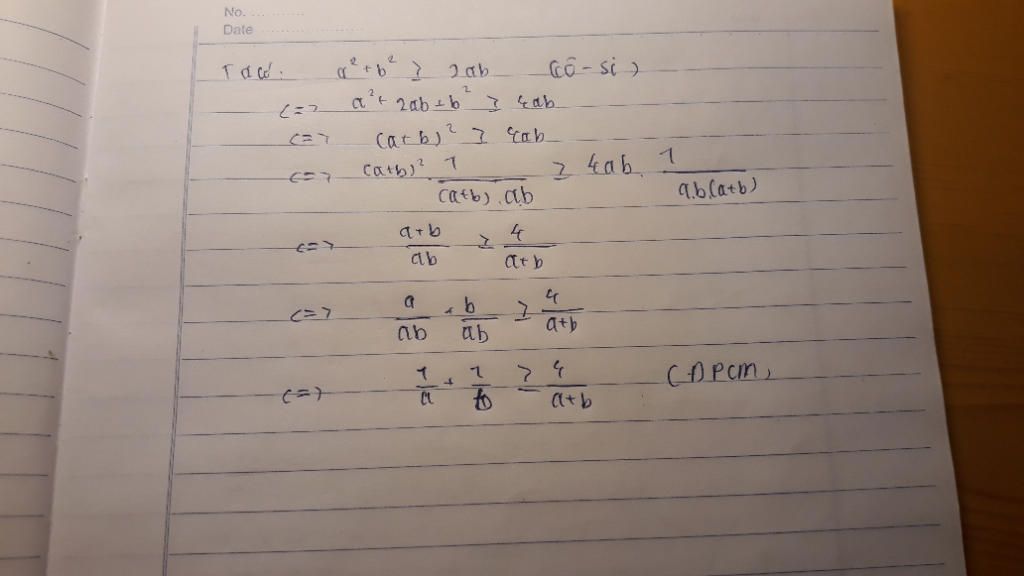 No. ............
Date ......................
Ta có: a² + b² ≥ 2ab (Cô-si)
<=> a² + 2ab + b² ≥ 4ab
<=> (a+b)² ≥ 4ab
<=> (a+b)² . 1/((a+b).ab) ≥ 4ab . 1/(ab(a+b))
<=> (a+b)/(ab) ≥ 4/(a+b)
<=> a/(ab) + b/(ab) ≥ 4/(a+b)
<=> 1/a + 1/b ≥ 4/(a+b) (ĐPCM)